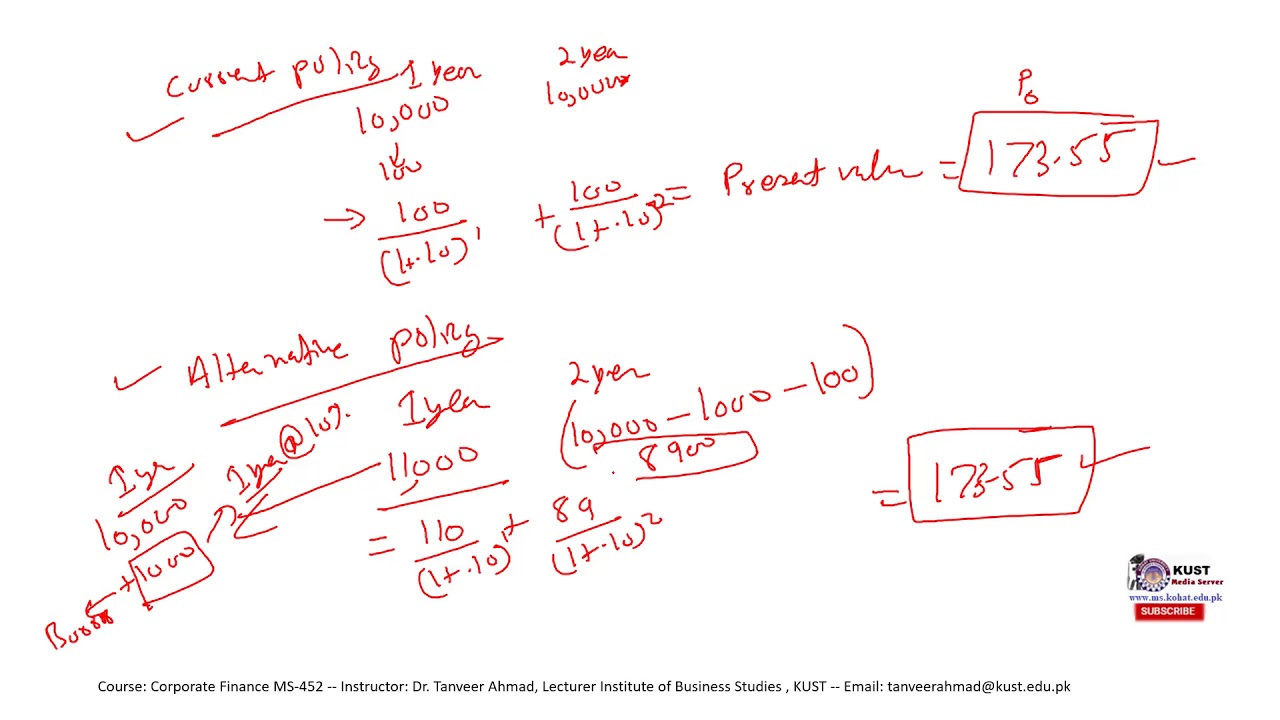 Current policy 1 year 2 year
10,000 10,000
100
→ 100/(1+.10)^1 + 100/(1+.10)^2 = Present value = 173.55
P0
Alternative policy
1 year 2 year
11,000 (10,000 - 1000 - 100)
8900
1 yr 1 year @ 10%.
10,000
+1000
= 110/(1+.10)^1 + 89/(1+.10)^2
= 173.55
KUST
Media Server
www.ms.kohat.edu.pk
SUBSCRIBE
Course: Corporate Finance MS-452 -- Instructor: Dr. Tanveer Ahmad, Lecturer Institute of Business Studies , KUST -- Email: tanveerahmad@kust.edu.pk